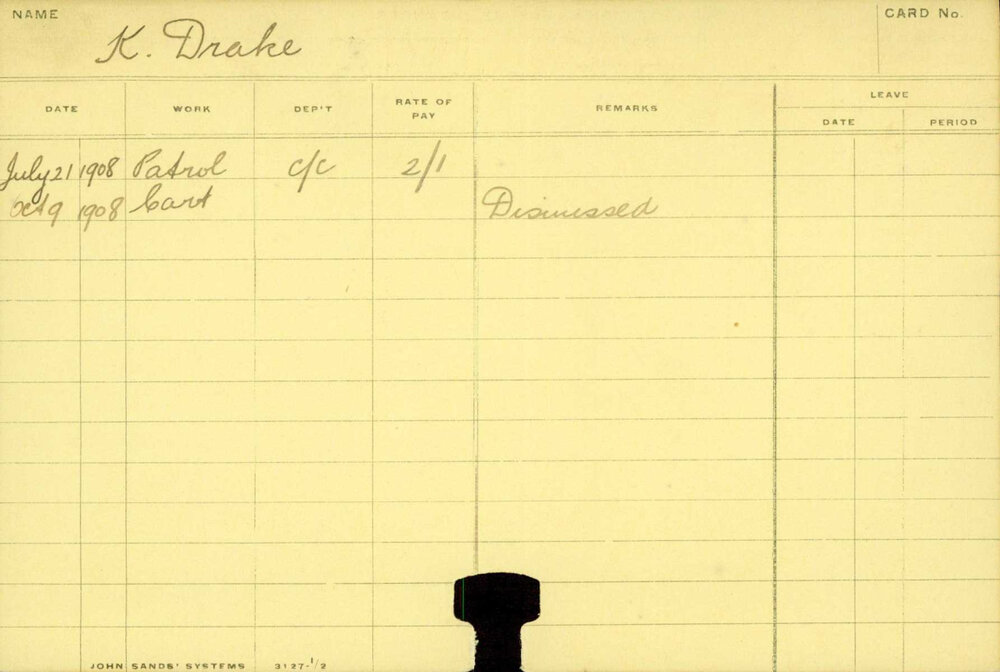 NAME K. Drake CARD No.
DATE WORK DEP'T RATE OF PAY REMARKS LEAVE
DATE PERIOD
July 21 1908 Patrol c/c 2/1
Oct 9 1908 Cart Dismissed
JOHN SANDS' SYSTEMS 3127-1/2